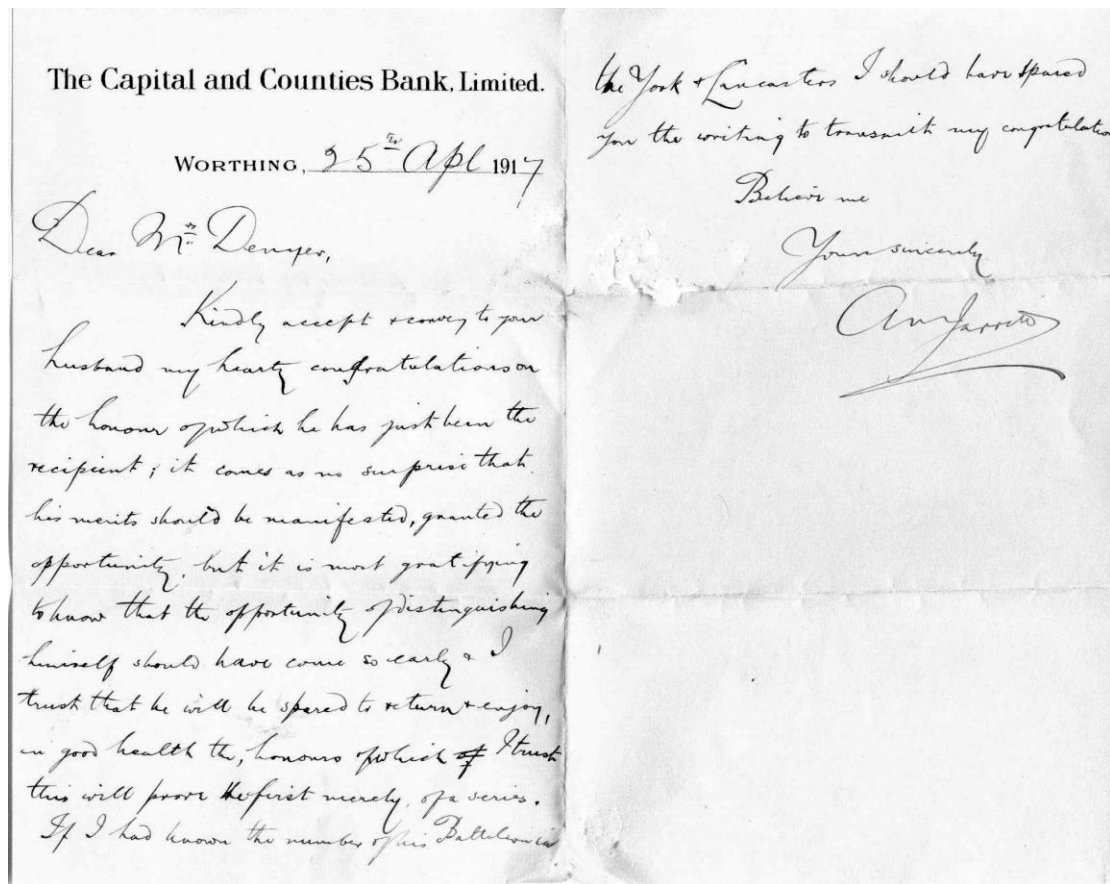 The Capital and Counties Bank, Limited.
WORTHING, 25th Apl 1917
Dear Mrs Denyer,
Kindly accept & convey to your
husband my hearty congratulations on
the honour of which he has just been the
recipient; it comes as no surprise that
his merits should be manifested, granted the
opportunity, but it is most gratifying
to know that the opportunity of distinguishing
himself should have come so early & I
trust that he will be spared to return & enjoy,
in good health the, honours of which of I trust
this will prove the first merely, of a series.
If I had known the number of his Battalion in
the York & Lancasters I should have spared
you the writing to transmit my congratulation
Believe me
Yours sincerely
Jarrett